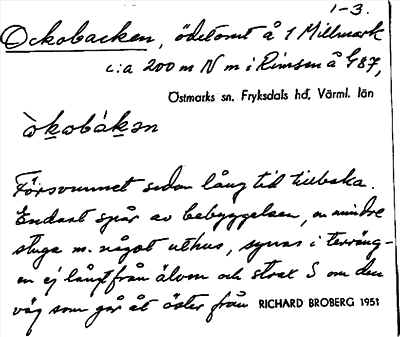 1-3.
Ockobacken, ödetomt å 1 Millmark
c:a 200 m N m i Rimsen å G 87,
Östmarks sn. Fryksdals hd, Värml. län
òkobákən
Försvunnet sedan lång tid tillbaka.
Endast spår av bebyggelsen, en mindre
stuga m. något uthus, synas i terräng-
en ej långt från älven och strax S om den
väg som går åt öster från RICHARD BROBERG 1951